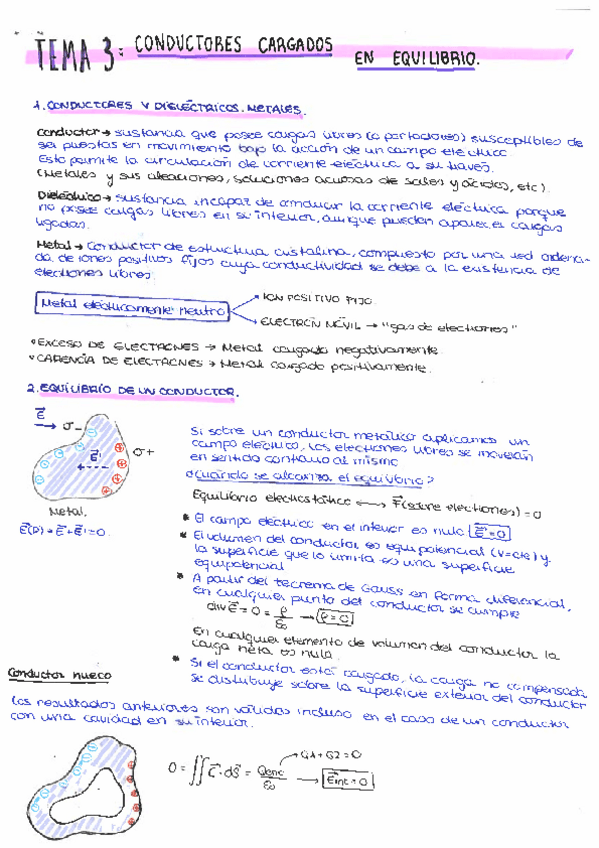 TEMA 3: CONDUCTORES CARGADOS
EN EQUILIBRIO.
1. CONDUCTORES Y DIELÉCTRICOS. METALES.
Conductor → sustancia que posee cargas libres (o portadores) susceptibles de
ser puestas en movimiento bajo la acción de un campo eléctrico.
Esto permite la circulación de corriente eléctrica a su través.
(Metales y sus aleaciones, soluciones acuosas de sales y ácidos, etc).
Dieléctrico → sustancia incapaz de conducir la corriente eléctrica porque
no posee cargas libres en su interior, aunque pueden aparecer cargas
ligadas.
Metal → Conductor de estructura cristalina, compuesto por una red ordena-
da de iones positivos fijos cuya conductividad se debe a la existencia de
electrones libres.
Metal eléctricamente neutro
ION POSITIVO FIJO
ELECTRÓN MÓVIL → "gas de electrones"
EXCESO DE ELECTRONES → Metal cargado negativamente.
CARENCIA DE ELECTRONES → Metal cargado positivamente.
2. EQUILIBRIO DE UN CONDUCTOR.
E⃗ σ- E⃗' σ+
Metal.
E⃗(P) = E⃗ + E⃗' = 0.
Si sobre un conductor metálico aplicamos un
campo eléctrico, los electrones libres se moverán
en sentido contrario al mismo
¿Cuándo se alcanza el equilibrio?
Equilibrio electrostático ⟷ F⃗(sobre electrones) = 0
* El campo eléctrico en el interior es nulo E⃗ = 0
* El volumen del conductor es equipotencial (V=cte) y
la superficie que lo limita es una superficie
equipotencial
* A partir del teorema de Gauss en forma diferencial,
en cualquier punto del conductor se cumple
div E⃗ = 0 = ρ/ε₀ → ρ = 0
En cualquier elemento de volumen del conductor la
carga neta es nula.
* Si el conductor está cargado, la carga no compensada
se distribuye sobre la superficie exterior del conductor
Conductor hueco
Los resultados anteriores son válidos incluso en el caso de un conductor
con una cavidad en su interior.
→ Q1+Q2=0
0 = ∬ E⃗·dS⃗ = Qenc/ε₀ → E⃗int = 0